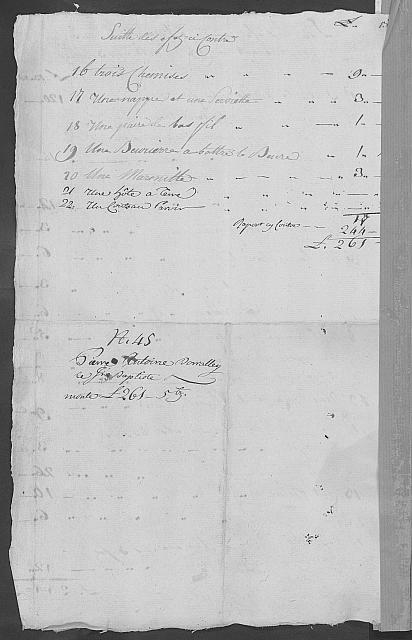 Suitte des
16 trois Chemises " " " " 9 "
17 Une nappe et une Serviette " " " 3 "
18 Une paire de bas fil " " " 1 "
19 Une Beurriere a battre le Beure " 1 "
20 Une Marmitte " " " " 3 "
21 Une
22. Un Couteau
Raport cy Contre 244
L. 261
N. 45
Pierre Antoine
de Jn Baptiste
monte L. 261